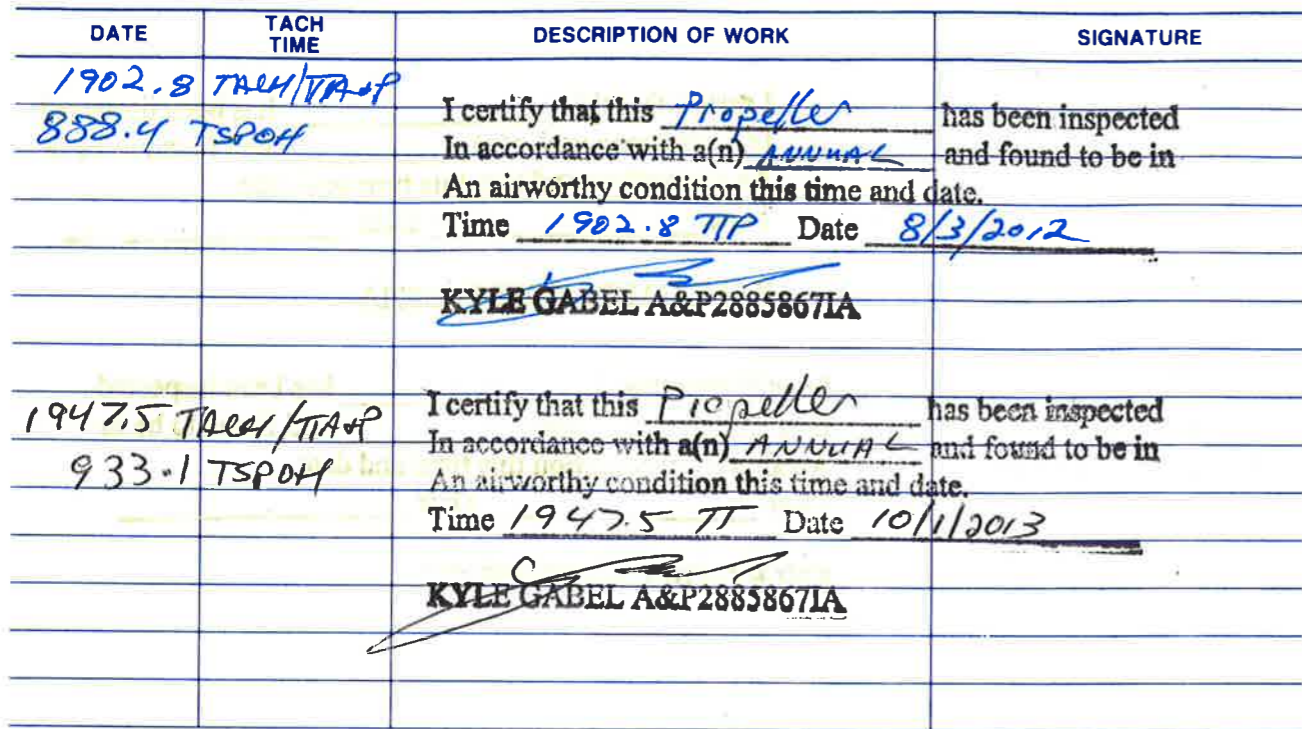 DATE TACH TIME DESCRIPTION OF WORK SIGNATURE
1902.8 TACH/TTA&P
888.4 TSPOH
I certify that this Propeller has been inspected
In accordance with a(n) ANNUAL and found to be in
An airworthy condition this time and date.
Time 1902.8 TTP Date 8/3/2012
KYLE GABEL A&P2885867IA
1947.5 TACH/TTA&P
933.1 TSPOH
I certify that this Propeller has been inspected
In accordance with a(n) ANNUAL and found to be in
An airworthy condition this time and date.
Time 1947.5 TT Date 10/1/2013
KYLE GABEL A&P2885867IA